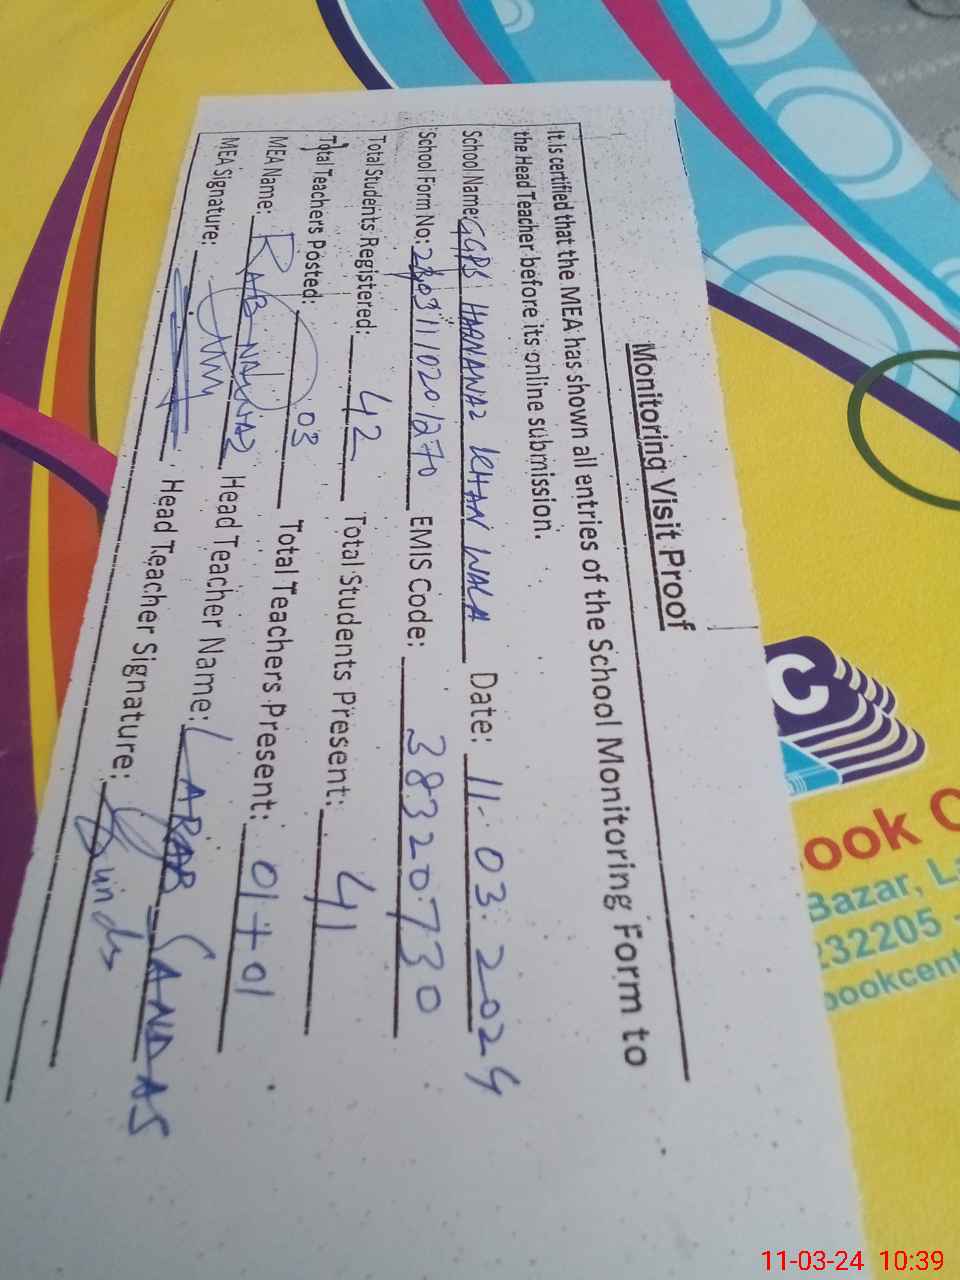 Monitoring Visit Proof
It is certified that the MEA has shown all entries of the School Monitoring Form to
the Head Teacher before its online submission.
School Name: GGPS HAQNANAZ KHAN WALA Date: 11.03.2024
School Form No: 2403111020 1270 EMIS Code: 38320730
Total Students Registered: 42 Total Students Present: 41
Total Teachers Posted: 03 Total Teachers Present: 01+01
MEA Name: RAB NAWAZ Head Teacher Name: LARAB SANDAS
MEA Signature: Head Teacher Signature:
C
ook C
Bazar, L
232205
bookcent
11-03-24 10:39